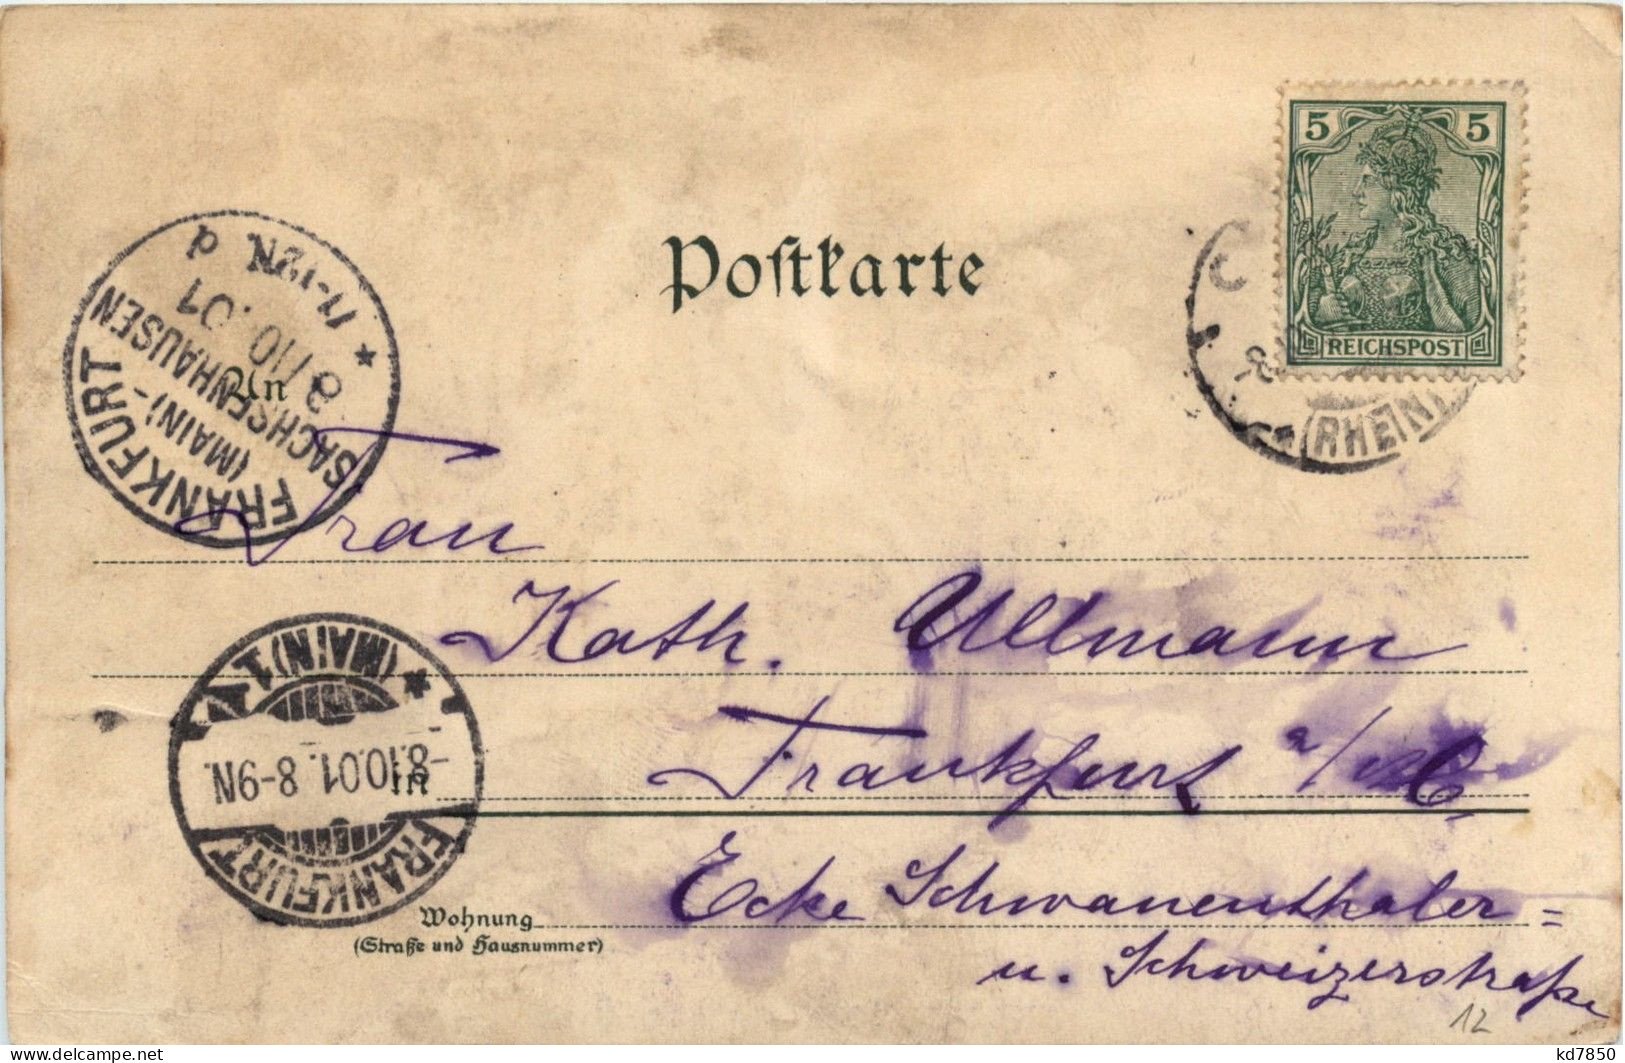 5 5
REICHSPOST
Postkarte
11-12N. d
8/10.01
FRANKFURT
(MAIN)-
SACHSENHAUSEN
(RHEIN)
An
Frau
Kath. Ullmann
Frankfurt a/M
in
(MAIN) 1
-8.10.01. 8-9N.
FRANKFURT
Ecke Schwanenthaler=
Wohnung
(Straße und Hausnummer)
u. Schweizerstraße
12
delcampe.net
kd7850